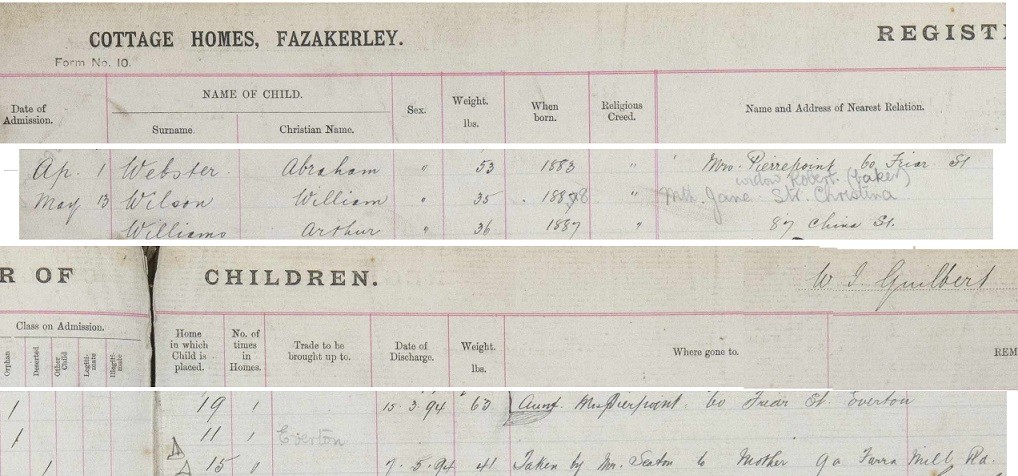 COTTAGE HOMES, FAZAKERLEY. REGIST
Form No. 10.
Date of Admission. NAME OF CHILD. Surname. Christian Name. Sex. Weight. lbs. When born. Religious Creed. Name and Address of Nearest Relation.
Ap. 1 Webster Abraham " 53 1883 " Mrs. Pierrepoint 60 Friar St
widow Robert. (baker)
May 13 Wilson William " 35 . 1887 8 " Jane Str. Christina
Williams Arthur " 36 1887 " 87 China St.
R OF CHILDREN. W I Guilbert
Class on Admission. Orphan Deserted Other Child Legiti-mate Illegiti-mate Home in which Child is placed. No. of times in Homes. Trade to be brought up to. Date of Discharge. Weight. lbs. Where gone to. REM
1 19 1 15. 3. 94 63 Aunt. Mrs Pierpoint. 60 Friar St. Everton
1 11 1 Everton
1 15 " 9. 5. 94 41 Taken by Mr. Seaton to Mother 90 Mill Rd.